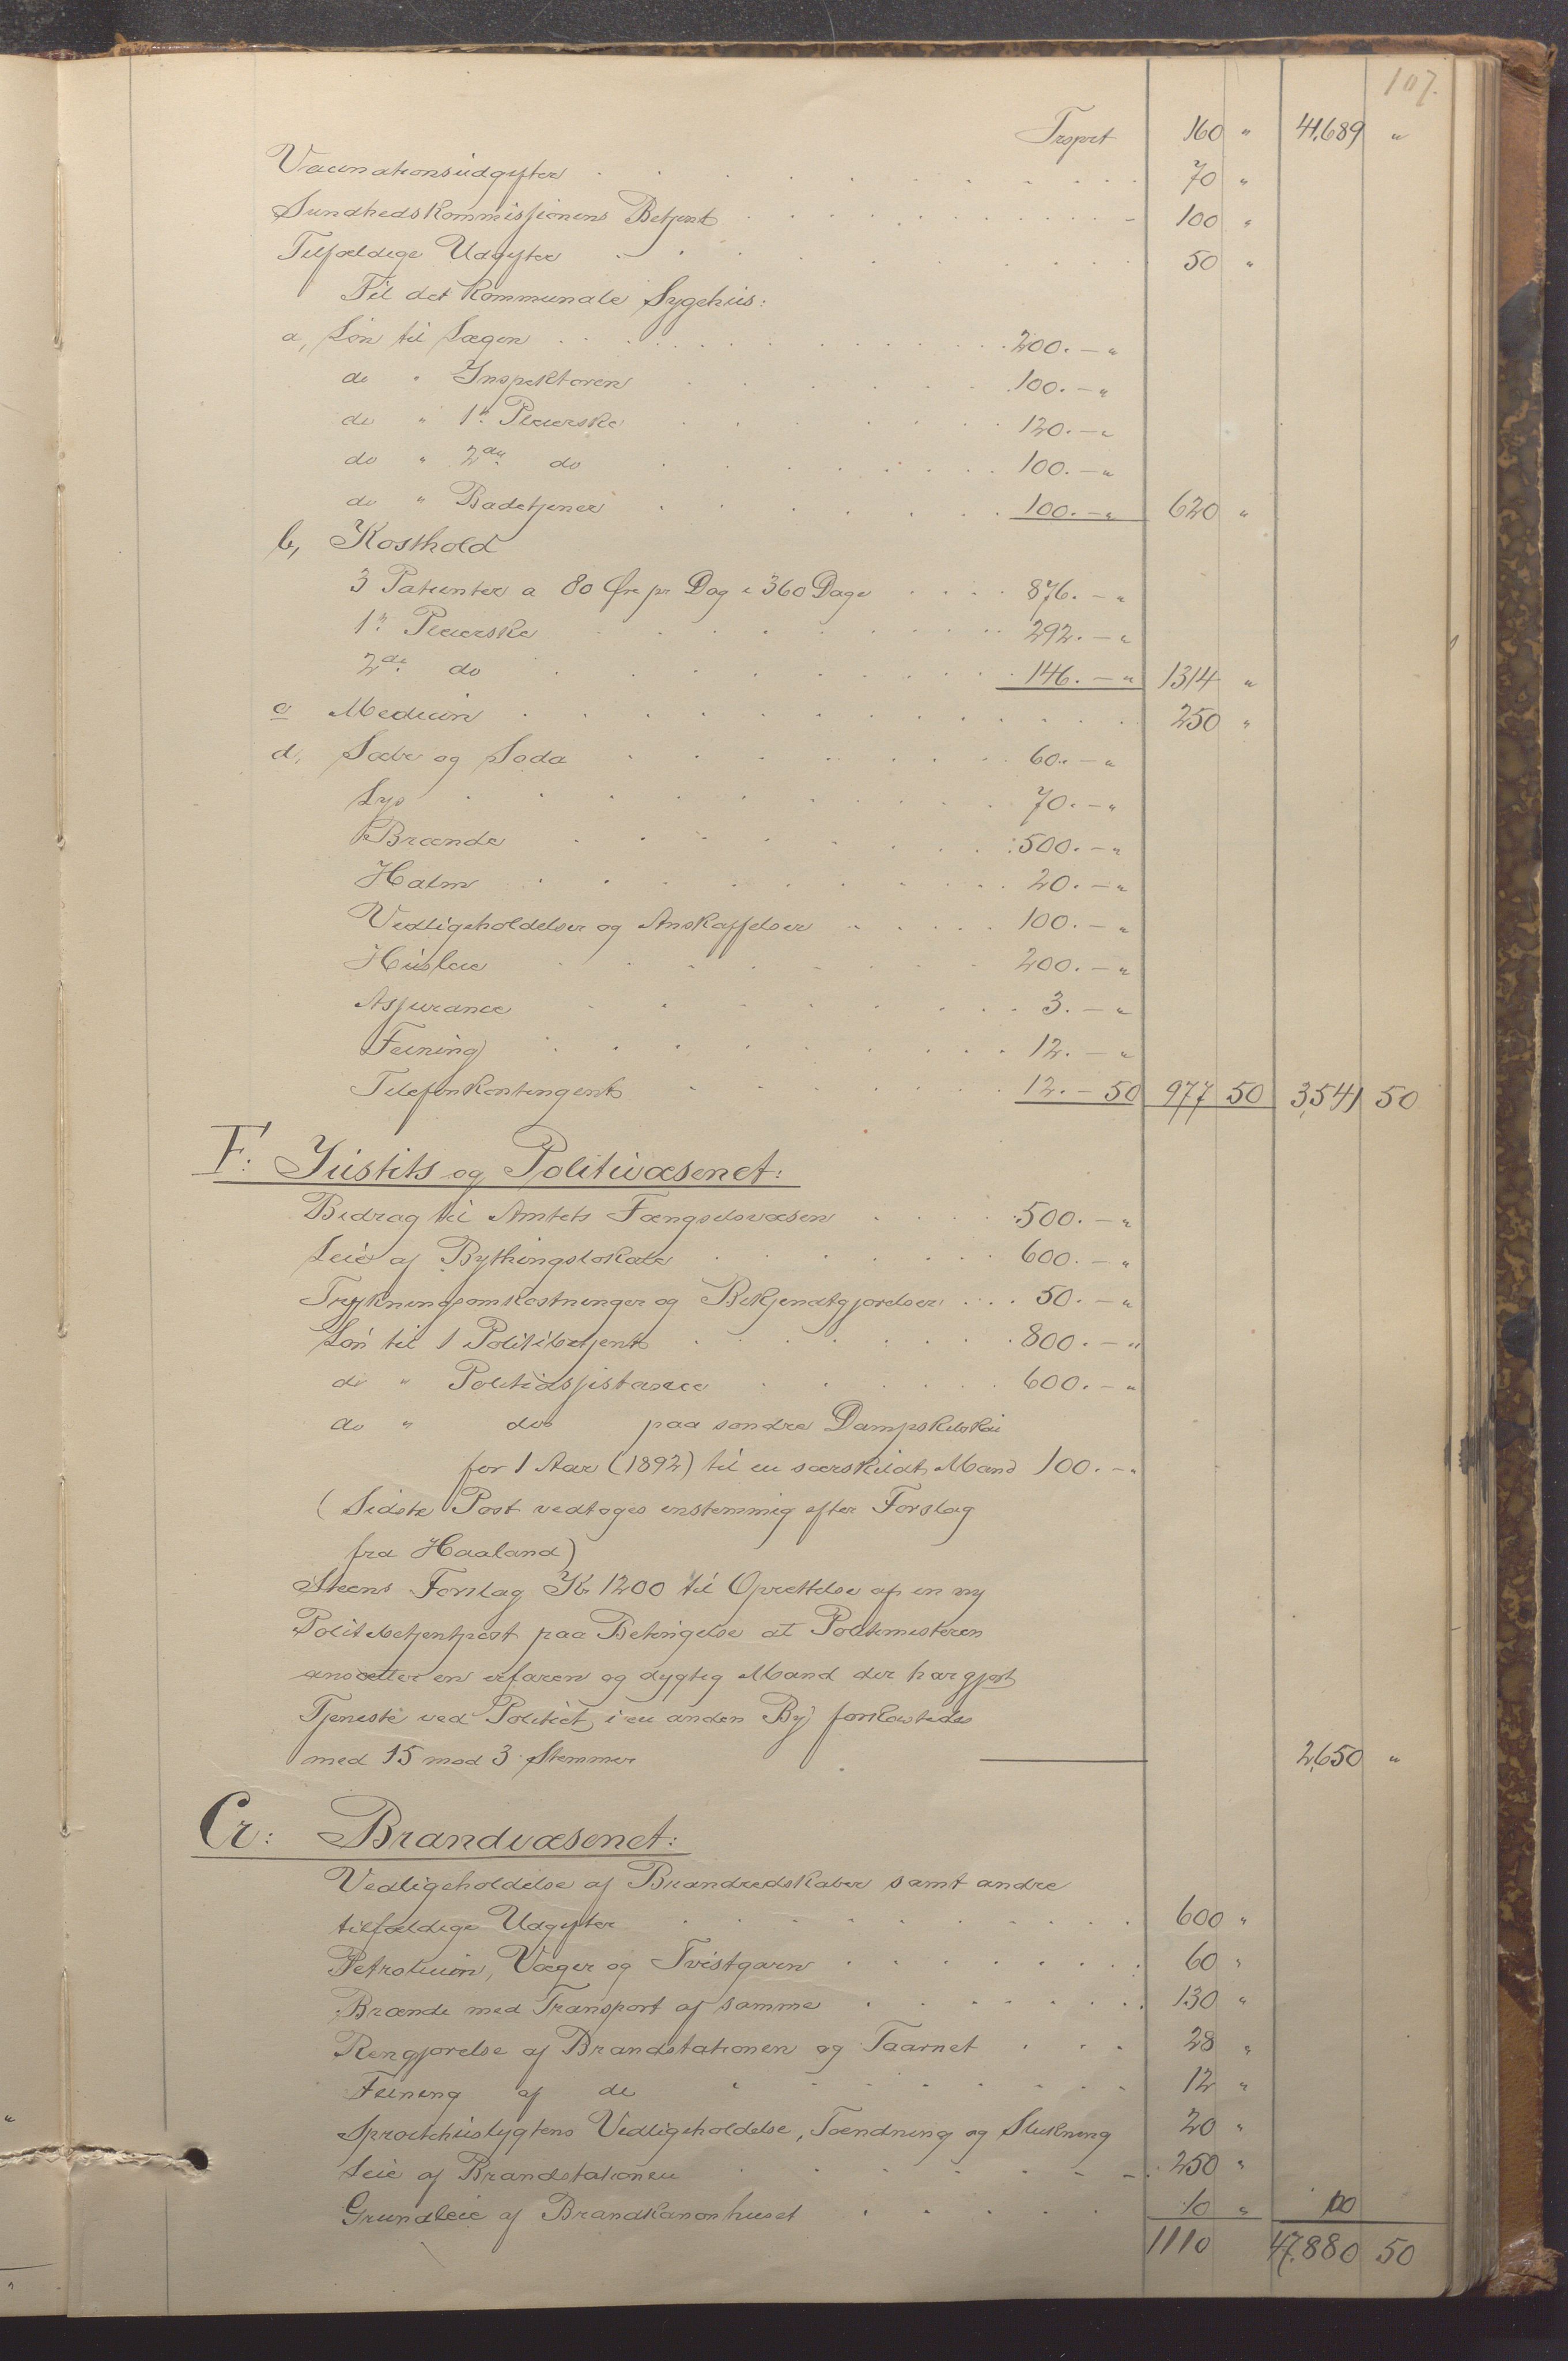 107.
Trsprt 160 " 41.689 "
Vaccinationsudgifter . . . 70 "
Sundhedskommissionens Betjent . . . 100 "
Tilfældige Udgifter . . . 50 "
Til det kommunale Sygehus:
a, Løn til Lægen . . . 200. – "
do " Inspektøren . . . 100. – "
do " 1ste Pleierske . . . 120. – "
do " 2den do . . . 100. – "
do " Badetjener . . . 100. – " 620 "
b, Kosthold
3 Patienter a 80 Øre pr Dag i 360 Dage . . . 876. – "
1ste Pleierske . . . 292. – "
2den do . . . 146. – " 1314 "
c Medicin . . . 250 "
d, Sæbe og Soda . . . 60. – "
Lys . . . 70. – "
Brænde . . . 500. – "
Halm . . . 20. – "
Vedligeholdelser og Anskaffelser . . . 100. – "
Husleie . . . 200. – "
Assurance . . . 3. – "
Feining . . . 12. – "
Telefonkontingent . . . 12. – 50 977 50 3,541 50
F: Justits og Politivæsenet:
Bidrag til Amtets Fængselsvæsen . . . 500. – "
Leie af Bythingslokale . . . 600. – "
Trykningsomkostninger og Bekjendtgjørelser . . . 50. – "
Løn til 1 Politibetjent . . . 800. – "
do " Politiassistance . . . 600. – "
do " do paa søndre Dampskibskai
for 1 Aar (1892) til en særskildt Mand 100. – "
(Sidste Post vedtoges enstemmig efter Forslag
fra Haaland)
Steens Forslag Kr 1200 til Oprettelse af en ny
Politibetjentpost paa Betingelse at Politimesteren
ansætter en erfaren og dygtig Mand der har gjort
Tjeneste ved Politiet i en anden By forkastedes
med 15 mod 3 Stemmer 2,650 "
G: Brandvæsenet:
Vedligeholdelse af Brandredskaber samt andre
tilfældige Udgifter . . . 600 "
Petroleum, Væger og Tvistgarn . . . 60 "
Brænde med Transport af samme . . . 130 "
Rengjørelse af Brandstationen og Taarnet . . . 28 "
Feining af do . . . 12 "
Sprøitehuslygtens Vedligeholdelse, Tændning og Slukning 20 "
Leie af Brandstationen . . . 250 "
Grundleie af Brandkanonhuset . . . 10 " 00
1110 47.880 50